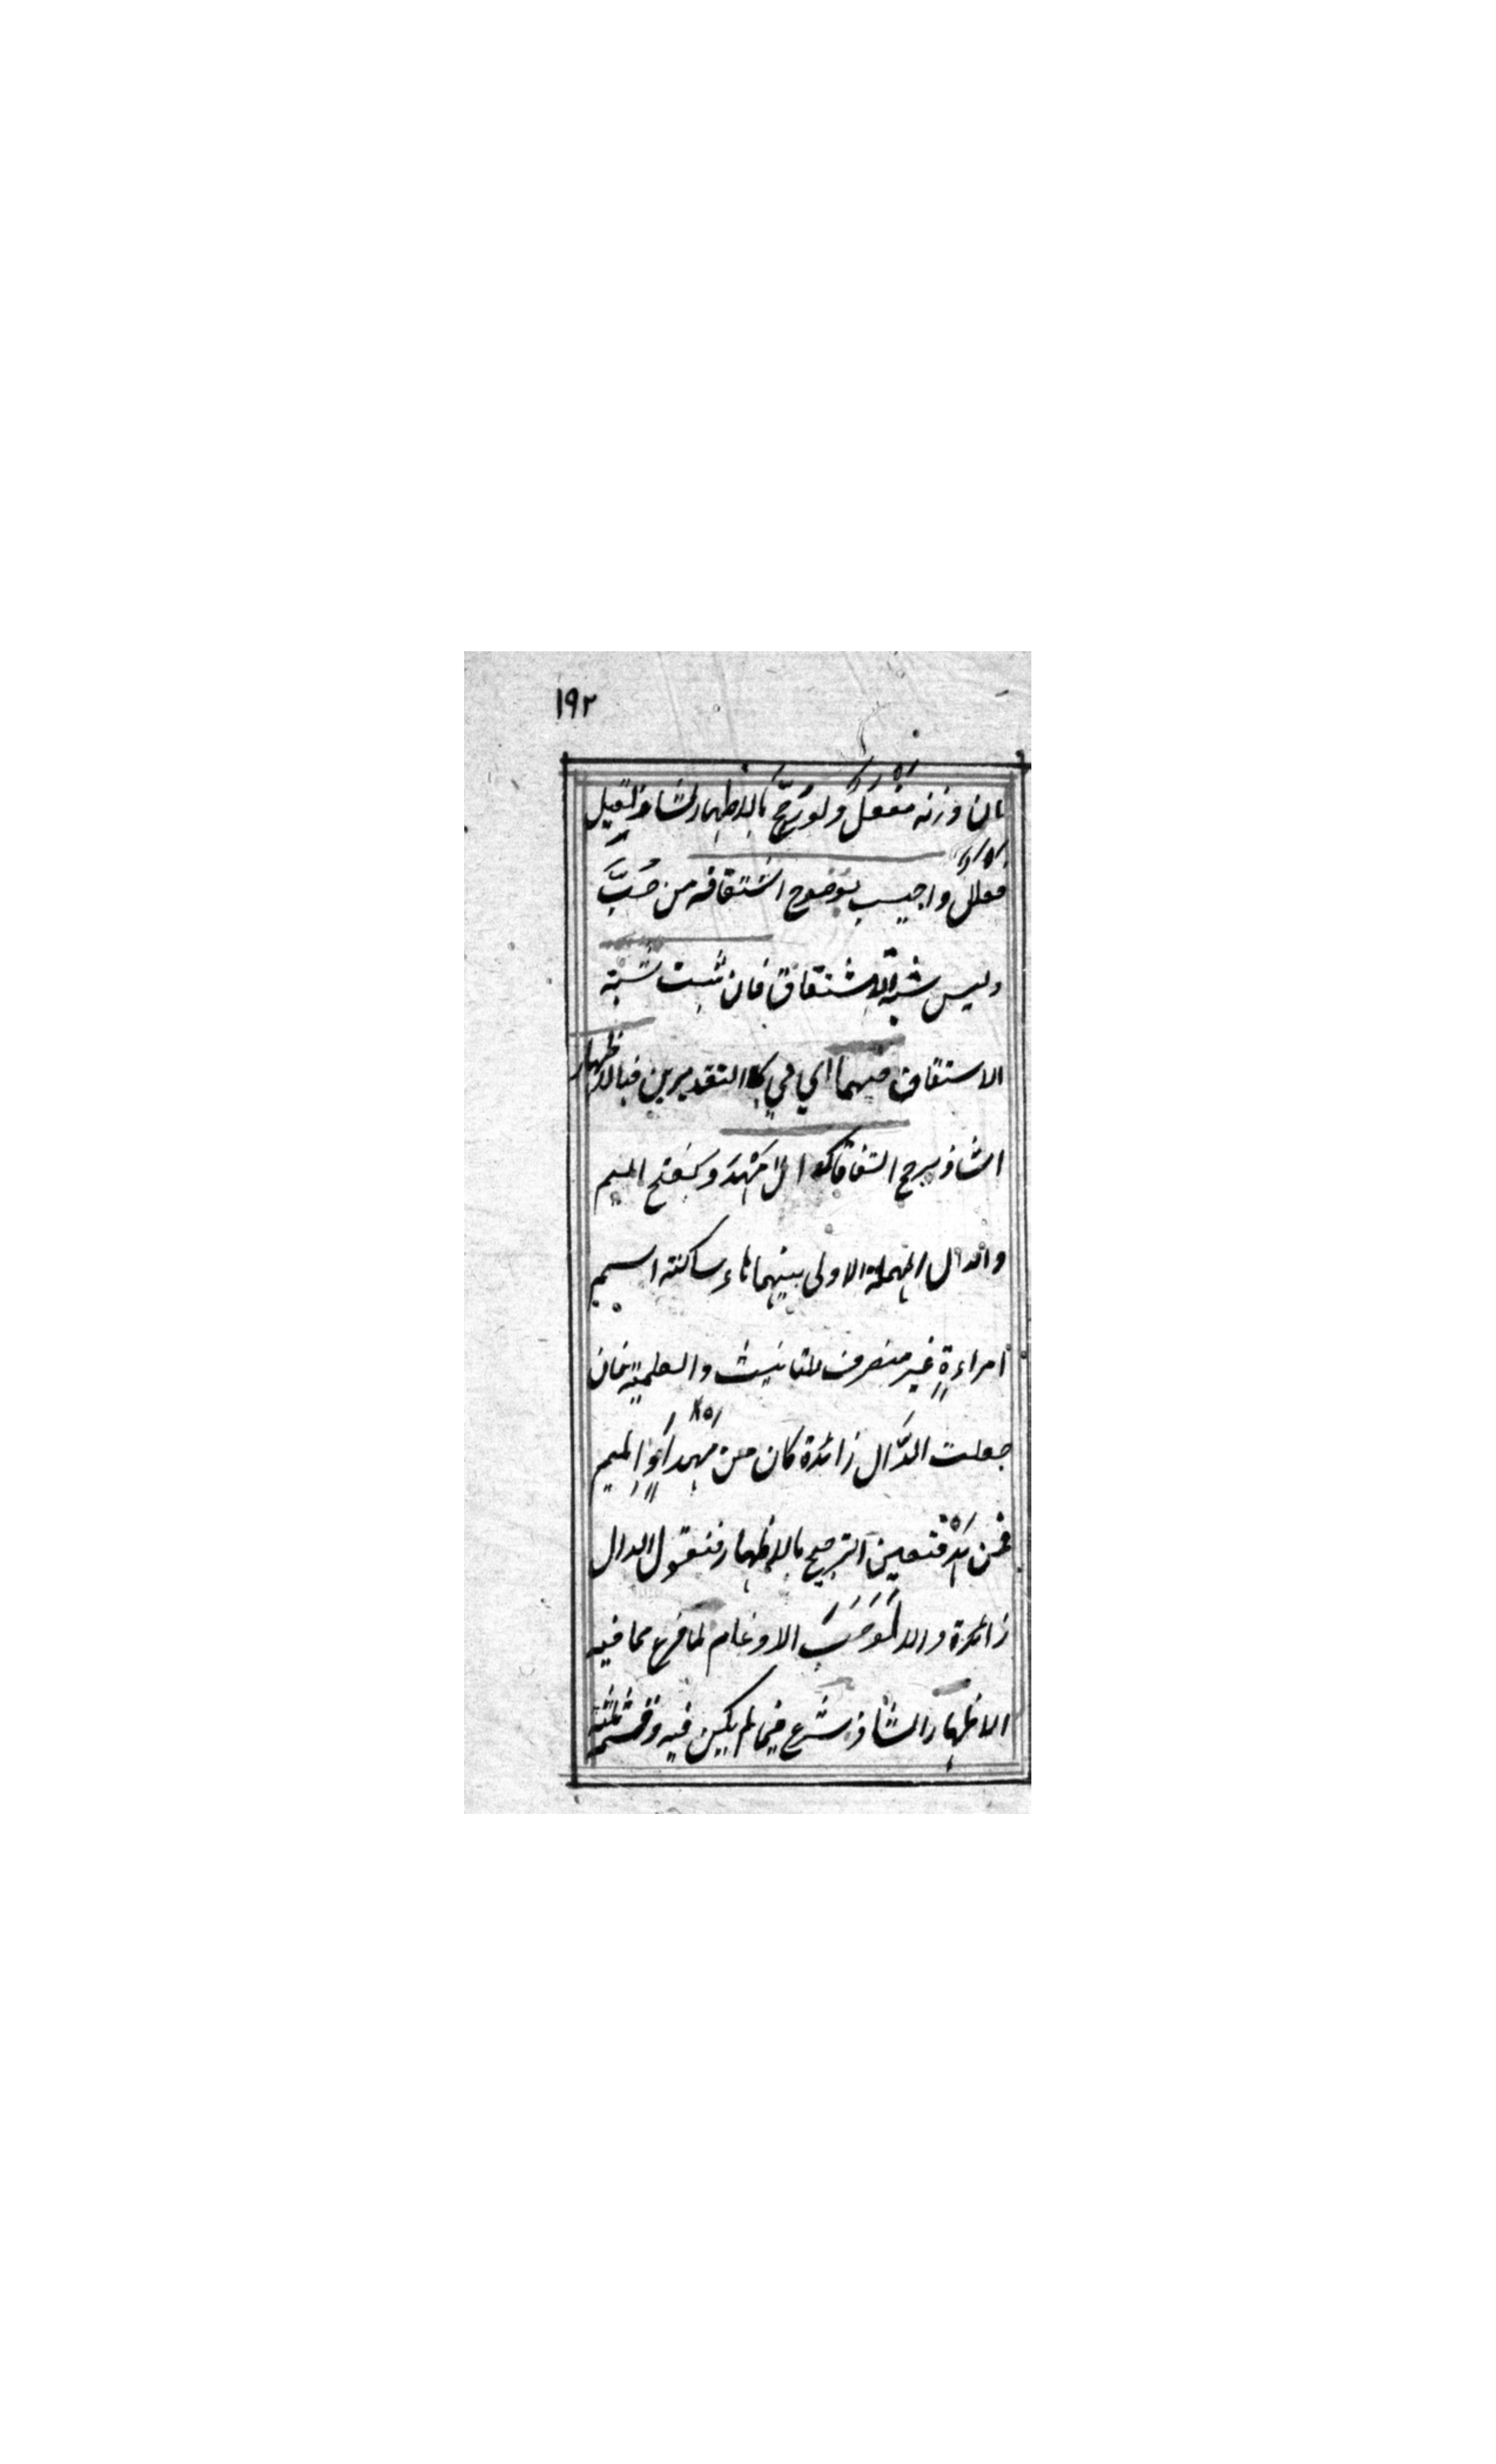 ١٩٢
بان وزنه مَفْعَلٌ ولو رُجّح بالاظهار الشاذ لقيل
فعلل واجيب بوضوح اشتقاقه من حُبَّ
وليس شبهة الاشتقاق فان ثبت شبهة
الاشتقاق فيهما اي في كلا التقديرين فبالاظهار
الشاذ يرجح اتفاقا كدال مَهْدَد وبفتح الميم
والدال المهملة الاولى بينهما هاء ساكنة اسم
امراءةٍ غير منصرف للتانيث والعلمية فان
جعلت الدَّال زائدة كان من مهد او الميم
فمن هَدّ فتعين الترجيح بالاظهار فنقول الدال
زائدة والا لَوَجَبَ الادغام لما فرغ مما فيه
الاظهار الشاذ شرع فيما لم يكن فيه وقسمه ثلثة